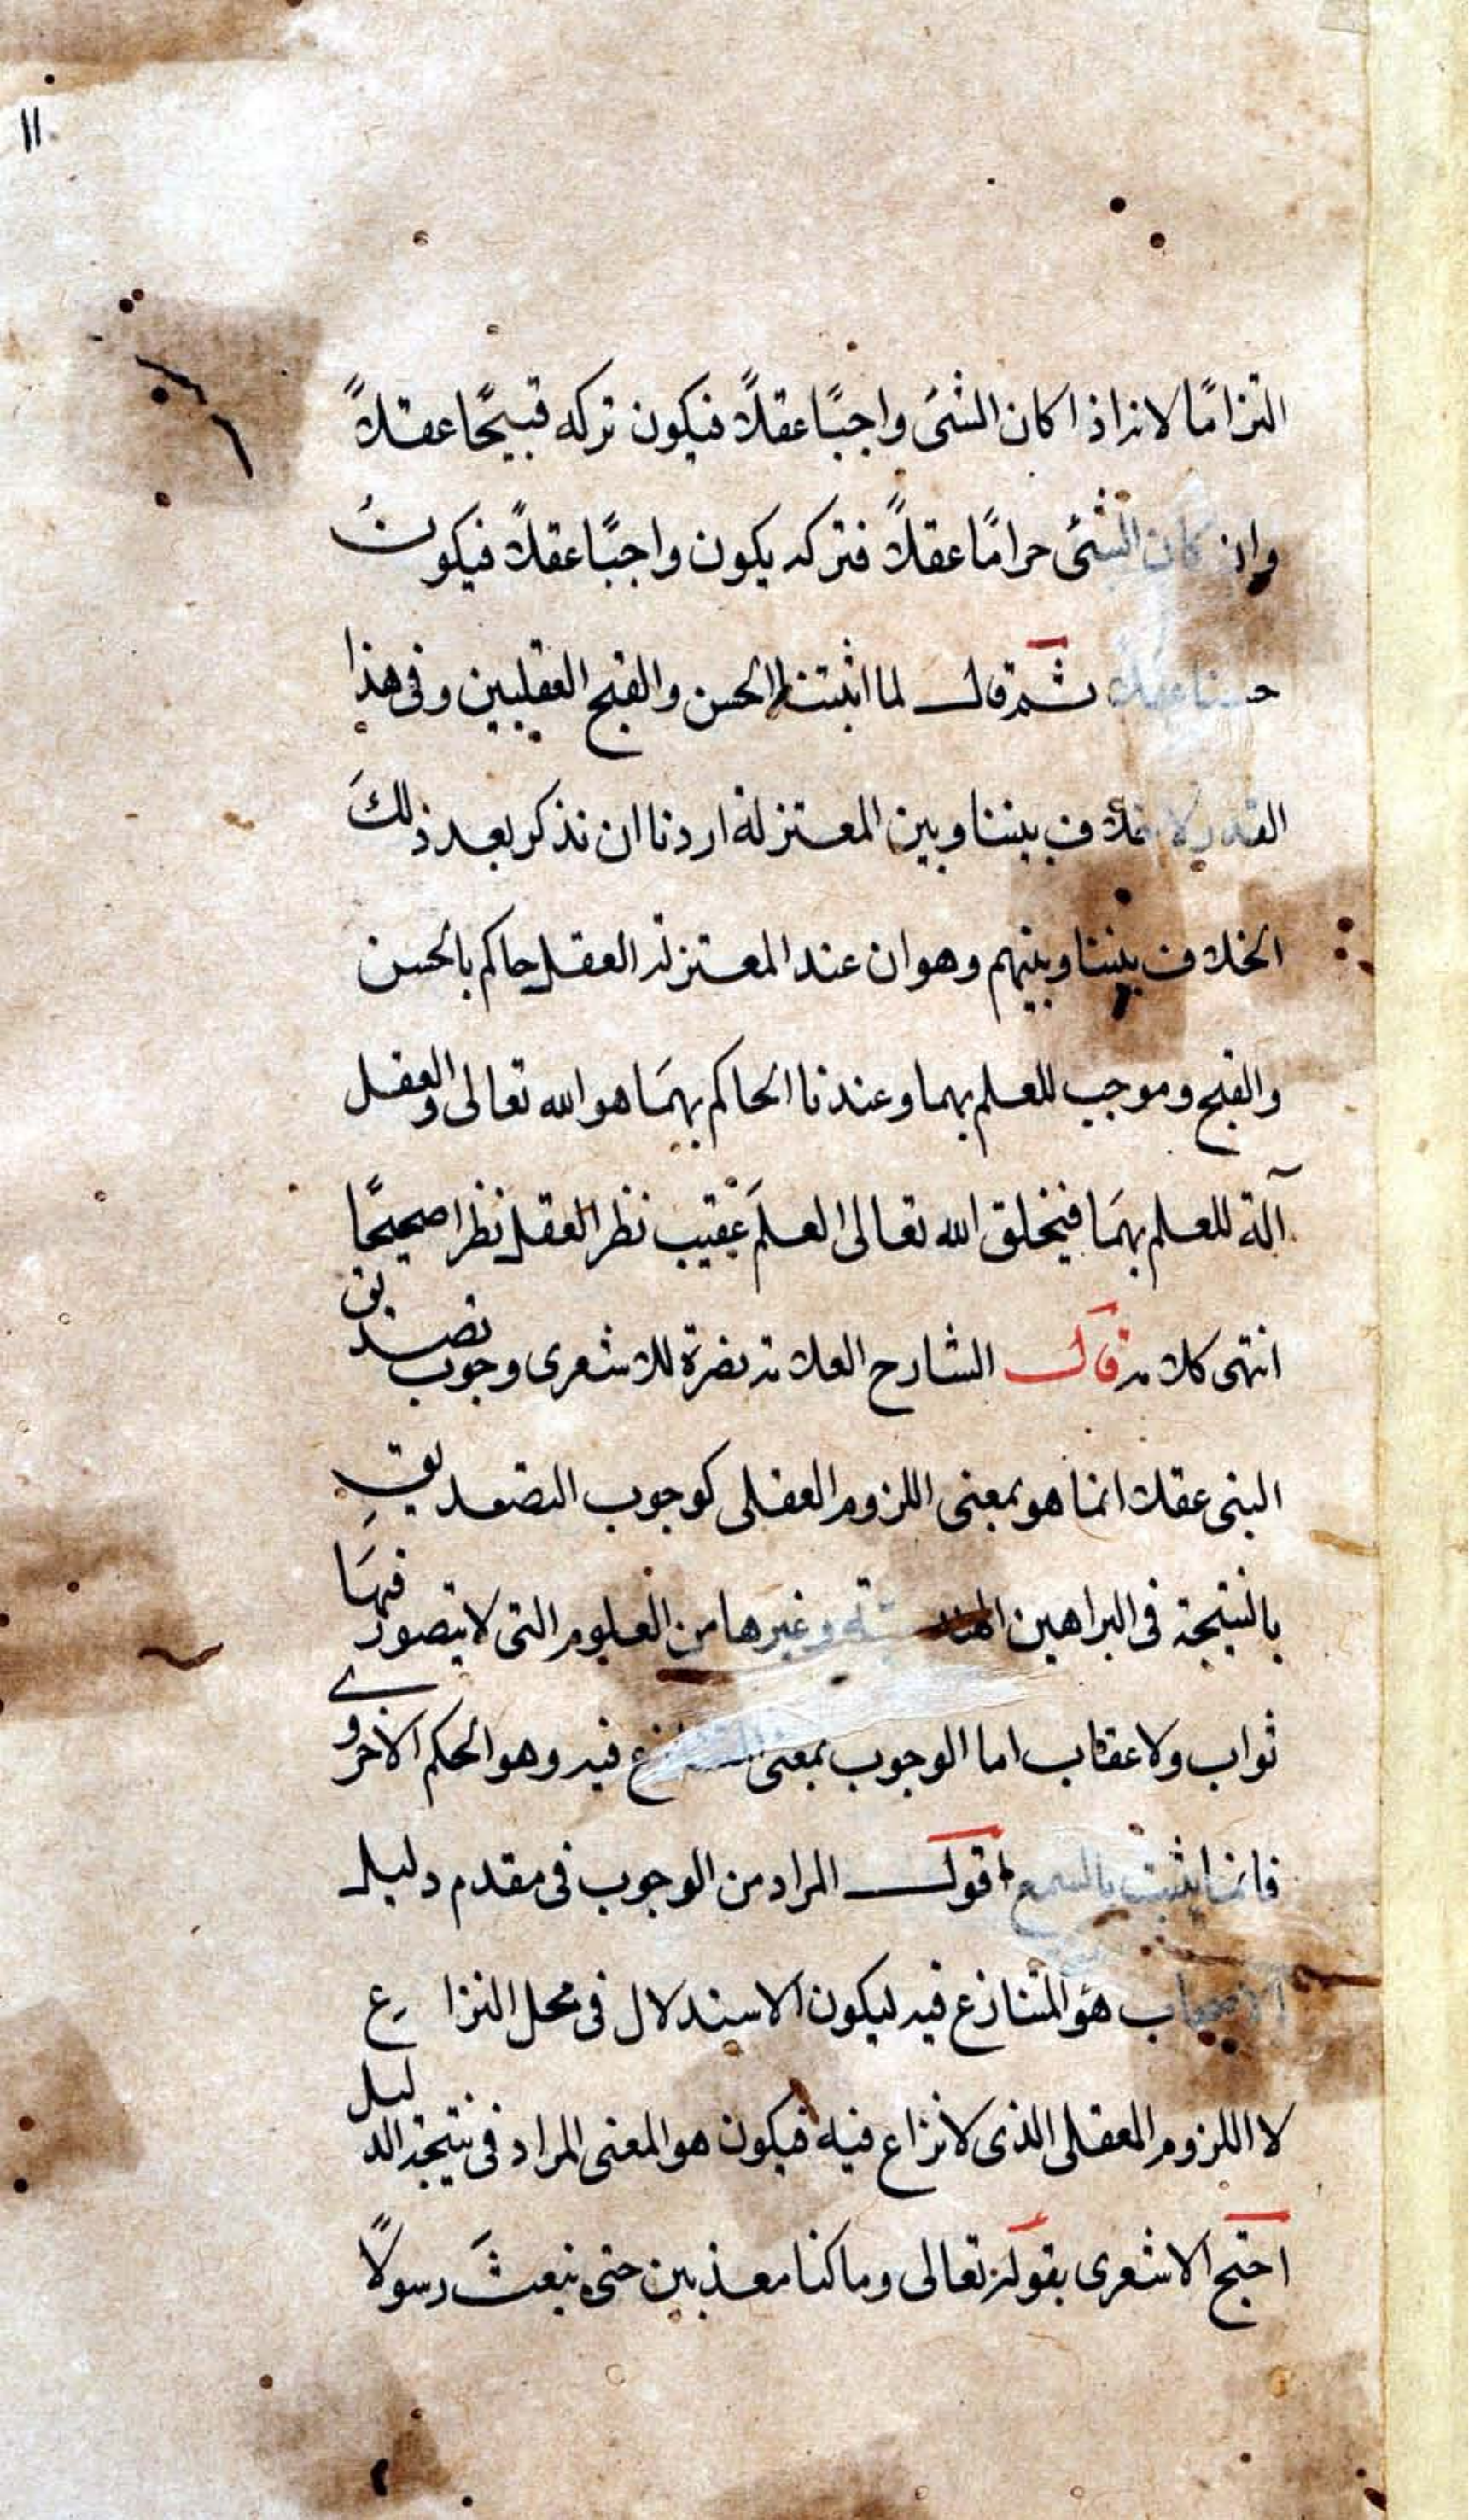 ١١
التزامًا لانه اذا كان الشئ واجبًا عقلاً فيكون تركه قبيحًا عقلاً
وان كان الشئ حرامًا عقلاً فتركه يكون واجبًا عقلاً فيكون
حسنا عقلا ثم قال لما اثبتنا الحسن والقبح العقليين وفى هذا
القدر لا خلاف بيننا وبين المعتزلة اردنا ان نذكر بعد ذلك
الخلاف بيننا وبينهم وهو ان عند المعتزله العقل حاكم بالحسن
والقبح وموجب للعلم بهما وعندنا الحاكم بهمَا هو الله تعالى والعقل
آلة للعلم بهمَا فيخلق الله تعالى العلمَ عقيب نظر العقل نظرا صحيحًا
انتهى كلامه قال الشارح العلامه نصرة للاشعرى وجوب تصديق
النبى عقلا انما هو بمعنى اللزوم العقلى كوجوب التصديقِ
بالنتيجة فى البراهين الهندسية وغيرها من العلوم التى لا يتصور فيهَا
ثواب ولا عقاب اما الوجوب بمعنى المتنازع فيه وهو الحكم الاخروى
فانما يثبت بالسمع اقول المراد من الوجوب فى مقدم دليل
الاصحاب هو المتنازع فيه ليكون الاستدلال فى محل النزاع
لا اللزوم العقلى الذى لا نزاع فيه فيكون هو المعنى المراد فى نتيجة الدليل
احتج الاشعرى بقوله تعالى وما كنا معذبين حتى نبعثَ رسولاً